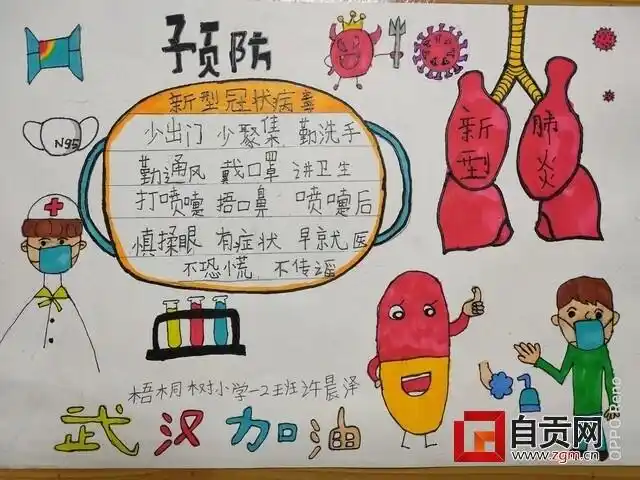 预防
新型冠状病毒
少出门 少聚集 勤洗手
勤通风 戴口罩 讲卫生
打喷嚏 捂口鼻 喷嚏后
慎揉眼 有症状 早就医
不恐慌 不传谣
N95
新型
肺炎
梧桐树小学一2班许晨泽
武汉加油
自贡网
www.zgm.cn
OPPO Reno